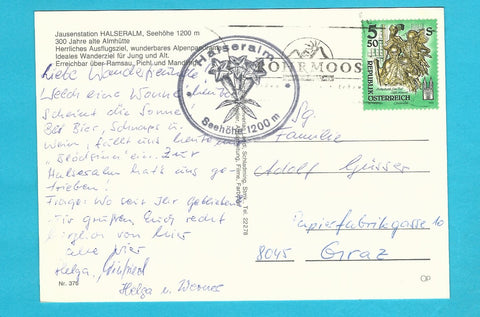 Jausenstation HALSERALM, Seehöhe 1200 m
300 Jahre alte Almhütte
Herrliches Ausflugsziel, wunderbares Alpenpanorama
Ideales Wanderziel für Jung und Alt.
Erreichbar über-Ramsau, Pichl und Mandling
Halseralm
Seehöhe 1200 m
5
50
S
REPUBLIK
ÖSTERREICH
Liebe Wanderfreunde
Welch eine Wonne heute
scheint die Sonne
Bei Bier, Schnaps u.
Wein, fällt uns heute nur
"Blödsinn" ein. Zur
Halseralm hat's uns ge-
trieben!
Frage: Wo seid Ihr geblieben
Wir grüßen Euch recht
herzlich von hier
Eure vier
Helga,
Helga u. Werner
Sg.
Familie
Adolf
Papierfabrikgasse 10
8045 Graz
Schladming, Tel. 22278
Nr. 376